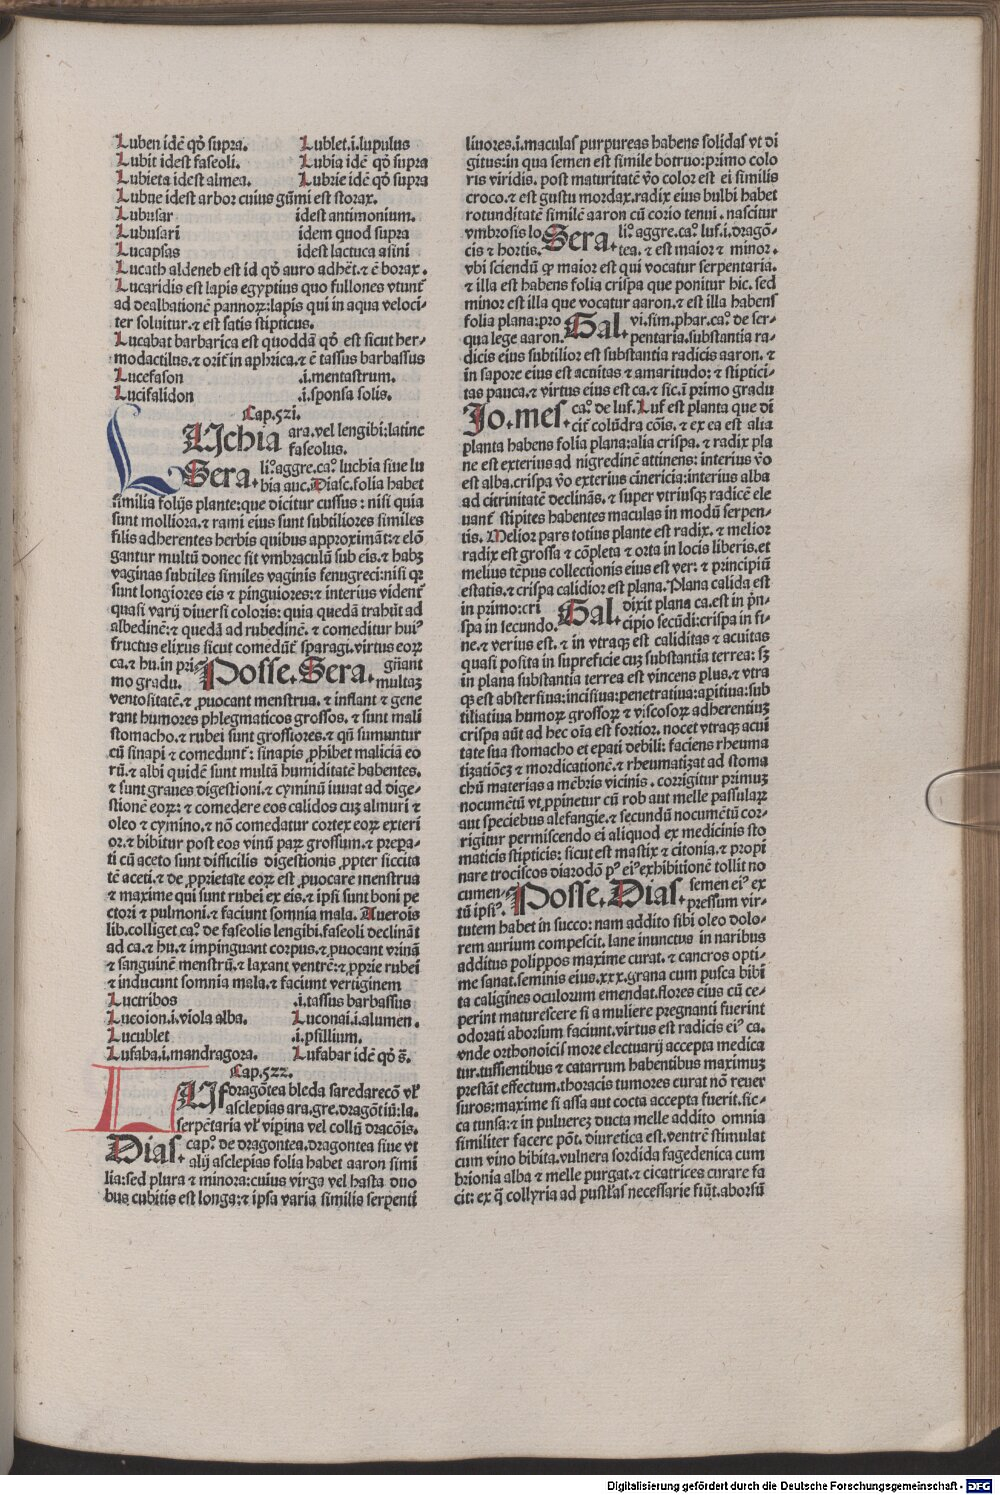 Luben idē qđ supra. Lublet.i.lupulus
Lubit idest faseoli. Lubia idē qđ supra
Lubieta idest almea. Lubrie idē qđ supra
Lubne idest arbor cuius gūmi est storax.
Lubusar idest antimonium.
Lubusari idem quod supra
Lucapsas idest lactuca asini
Lucath aldeneb est id qđ auro adhēt.⁊ ē borax.
Lucaridis est lapis egyptius quo fullones vtunt᷑
ad dealbationē pannoꝝ:lapis qui in aqua veloci-
ter soluitur.⁊ est satis stipticus.
Lucabat barbarica est quoddā qđ est sicut her-
modactilus.⁊ orit᷑ in aphrica.⁊ ē tassus barbassus
Lucefason .i.mentastrum.
Lucifalidon .i.sponsa solis.
Cap.521.
LUchia ara.vel lengibi:latine
faseolus.
Sera. li.aggre.ca. luchia siue lu
bia auc.Diasc.folia habet
similia folijs plante:que dicitur cussus: nisi quia
sunt molliora.⁊ rami eius sunt subtiliores similes
filis adherentes herbis quibus approximāt:⁊ elō
gantur multū donec sit vmbraculū sub eis.⁊ habꝫ
vaginas subtiles similes vaginis fenugreci:nisi qꝛ
sunt longiores eis ⁊ pinguiores:⁊ interius vident᷑
quasi varij diuersi coloris: quia quedā trahūt ad
albedinē:⁊ quedā ad rubedinē. ⁊ comeditur huiꝰ
fructus elixus sicut comedūt᷑ sparagi.virtus eoꝝ
ca.⁊ hu.in pri- Posse. Sera. gn̄ant
mo gradu. multaꝫ
ventositatē.⁊ ꝓuocant menstrua. ⁊ inflant ⁊ gene
rant humores phlegmaticos grossos. ⁊ sunt mali
stomacho.⁊ rubei sunt grossiores.⁊ qn̄ sumuntur
cū sinapi ⁊ comedunt᷑: sinapis ꝓhibet maliciā eo
rū.⁊ albi quidē sunt multā humiditatē habentes.
⁊ sunt graues digestioni.⁊ cyminū iuuat ad dige-
stionē eoꝝ: ⁊ comedere eos calidos cuꝫ almuri ⁊
oleo ⁊ cymino.⁊ nō comedatur cortex eoꝝ exteri
or.⁊ bibitur post eos vinū paꝝ grossum.⁊ prepa-
ti cū aceto sunt difficilis digestionis ꝓpter siccita
tē aceti.⁊ de ꝓprietate eoꝝ est ꝓuocare menstrua
⁊ maxime qui sunt rubei ex eis.⁊ ipsi sunt boni pe
ctori ⁊ pulmoni.⁊ faciunt somnia mala. Auerois
lib.colliget ca. de faseolis lengibi.faseoli declināt
ad ca.⁊ hu.⁊ impinguant corpus.⁊ ꝓuocant vrinā
⁊ sanguinē menstrū.⁊ laxant ventrē:⁊ ꝓprie rubei
⁊ inducunt somnia mala.⁊ faciunt vertiginem
Luctribos .i.tassus barbassus
Lucoion.i.viola alba. Luconai.i.alumen.
Lucublet .i.psillium.
Lufaba.i.mandragora. Lufabar idē qđ s̄.
Cap.522.
LUf dragōtea bleda saredarecō vł
asclepias ara.gre.dragōtiū:la.
serpētaria vł vipina vel collū dracōis.
Dias. cap. de dragontea.dragontea siue vt
alij asclepias folia habet aaron simi
lia:sed plura ⁊ minora:cuius virga vel hasta duo
bus cubitis est longa:⁊ ipsa varia similis serpenti
liuores.i.maculas purpureas habens solidas vt di
gitus:in qua semen est simile botruo:primo colo
ris viridis. post maturitatē v̄o color est ei similis
croco.⁊ est gustu mordax.radix eius bulbi habet
rotunditatē similē aaron cū corio tenui. nascitur
vmbrosis lo Sera. li.aggre.ca. luf.i.dragō-
cis ⁊ hortis. tea. ⁊ est maior ⁊ minor.
vbi sciendū ꝙ maior est qui vocatur serpentaria.
⁊ illa est habens folia crispa que ponitur hic. sed
minor est illa que vocatur aaron.⁊ est illa habens
folia plana:pro Gal. vi.sim.phar.ca. de ser-
qua lege aaron. pentaria.substantia ra-
dicis eius subtilior est substantia radicis aaron. ⁊
in sapore eius est acuitas ⁊ amaritudo: ⁊ stiptici-
tas pauca.⁊ virtus eius est ca.⁊ sic.ī primo gradu
Jo.mes. ca. de luf. Luf est planta que di
cit᷑ colūdra cōis.⁊ ex ea est alia
planta habens folia plana:alia crispa. ⁊ radix pla
ne est exterius ad nigredinē attinens: interius v̄o
est alba.crispa v̄o exterius cinericia:interius alba
ad citrinitatē declinās. ⁊ super vtriusqꝫ radicē ele
uant᷑ stipites habentes maculas in modū serpen-
tis. Melior pars totius plante est radix. ⁊ melior
radix est grossa ⁊ cōpleta ⁊ orta in locis liberis.et
melius tēpus collectionis eius est ver: ⁊ principiū
estatis.⁊ crispa calidior est plana.Plana calida est
in primo:cri Gal. dixit plana ca.est in p̄n-
spa in secundo. cipio secūdi:crispa in fi-
ne.⁊ verius est. ⁊ in vtraqꝫ est caliditas ⁊ acuitas
quasi posita in supreficie cuꝫ substantia terrea: sꝫ
in plana substantia terrea est vincens plus.⁊ vtra
qꝫ est abstersiua:incisiua:penetratiua:aꝑitiua:sub
tiliatiua humoꝝ grossoꝝ ⁊ viscosoꝝ adherentiuꝫ
crispa aūt ad hec oīa est fortior. nocet vtraqꝫ acui
tate sua stomacho et epati debili: faciens rheuma
tizatiōeꝫ ⁊ mordicationē.⁊ rheumatizat ad stoma
chū materias a mēbris vicinis . corrigitur primuꝫ
nocumētū vt ꝓpinetur cū rob aut melle passularꝝ
aut speciebus alefangie.⁊ secundū nocumētū cor-
rigitur permiscendo ei aliquod ex medicinis sto
maticis stipticis: sicut est mastix ⁊ citonia.⁊ propi
nare trociscos diarodō pꝰ eiꝰ exhibitionē tollit no
cumen- Posse. Dias. semen eiꝰ ex
tū ipsiꝰ. pressum vir-
tutem habet in succo: nam addito sibi oleo dolo-
rem aurium compescit. lane inunctus in naribus
additus polippos maxime curat. ⁊ cancros opti-
me sanat.seminis eius.xxx.grana cum pusca bibi
ta caligines oculorum emendat.flores eius cū ce-
perint maturescere si a muliere pregnanti fuerint
odorati aborsum faciunt.virtus est radicis eiꝰ ca.
vnde orthonoicis more electuarij accepta medica
tur.tussientibus ⁊ catarrum habentibus maximuꝫ
prestāt effectum.thoracis tumores curat nō reuer
suros:maxime si assa aut cocta accepta fuerit.sic-
ca tunsa:⁊ in puluereꝫ ducta melle addito omnia
similiter facere pōt. diuretica est.ventrē stimulat
cum vino bibita.vulnera sordida fagedenica cum
brionia alba ⁊ melle purgat.⁊ cicatrices curare fa
cit: ex q̄ collyria ad pustłas necessarie fiūt.aborsū
Digitalisierung gefördert durch die Deutsche Forschungsgemeinschaft - DFG